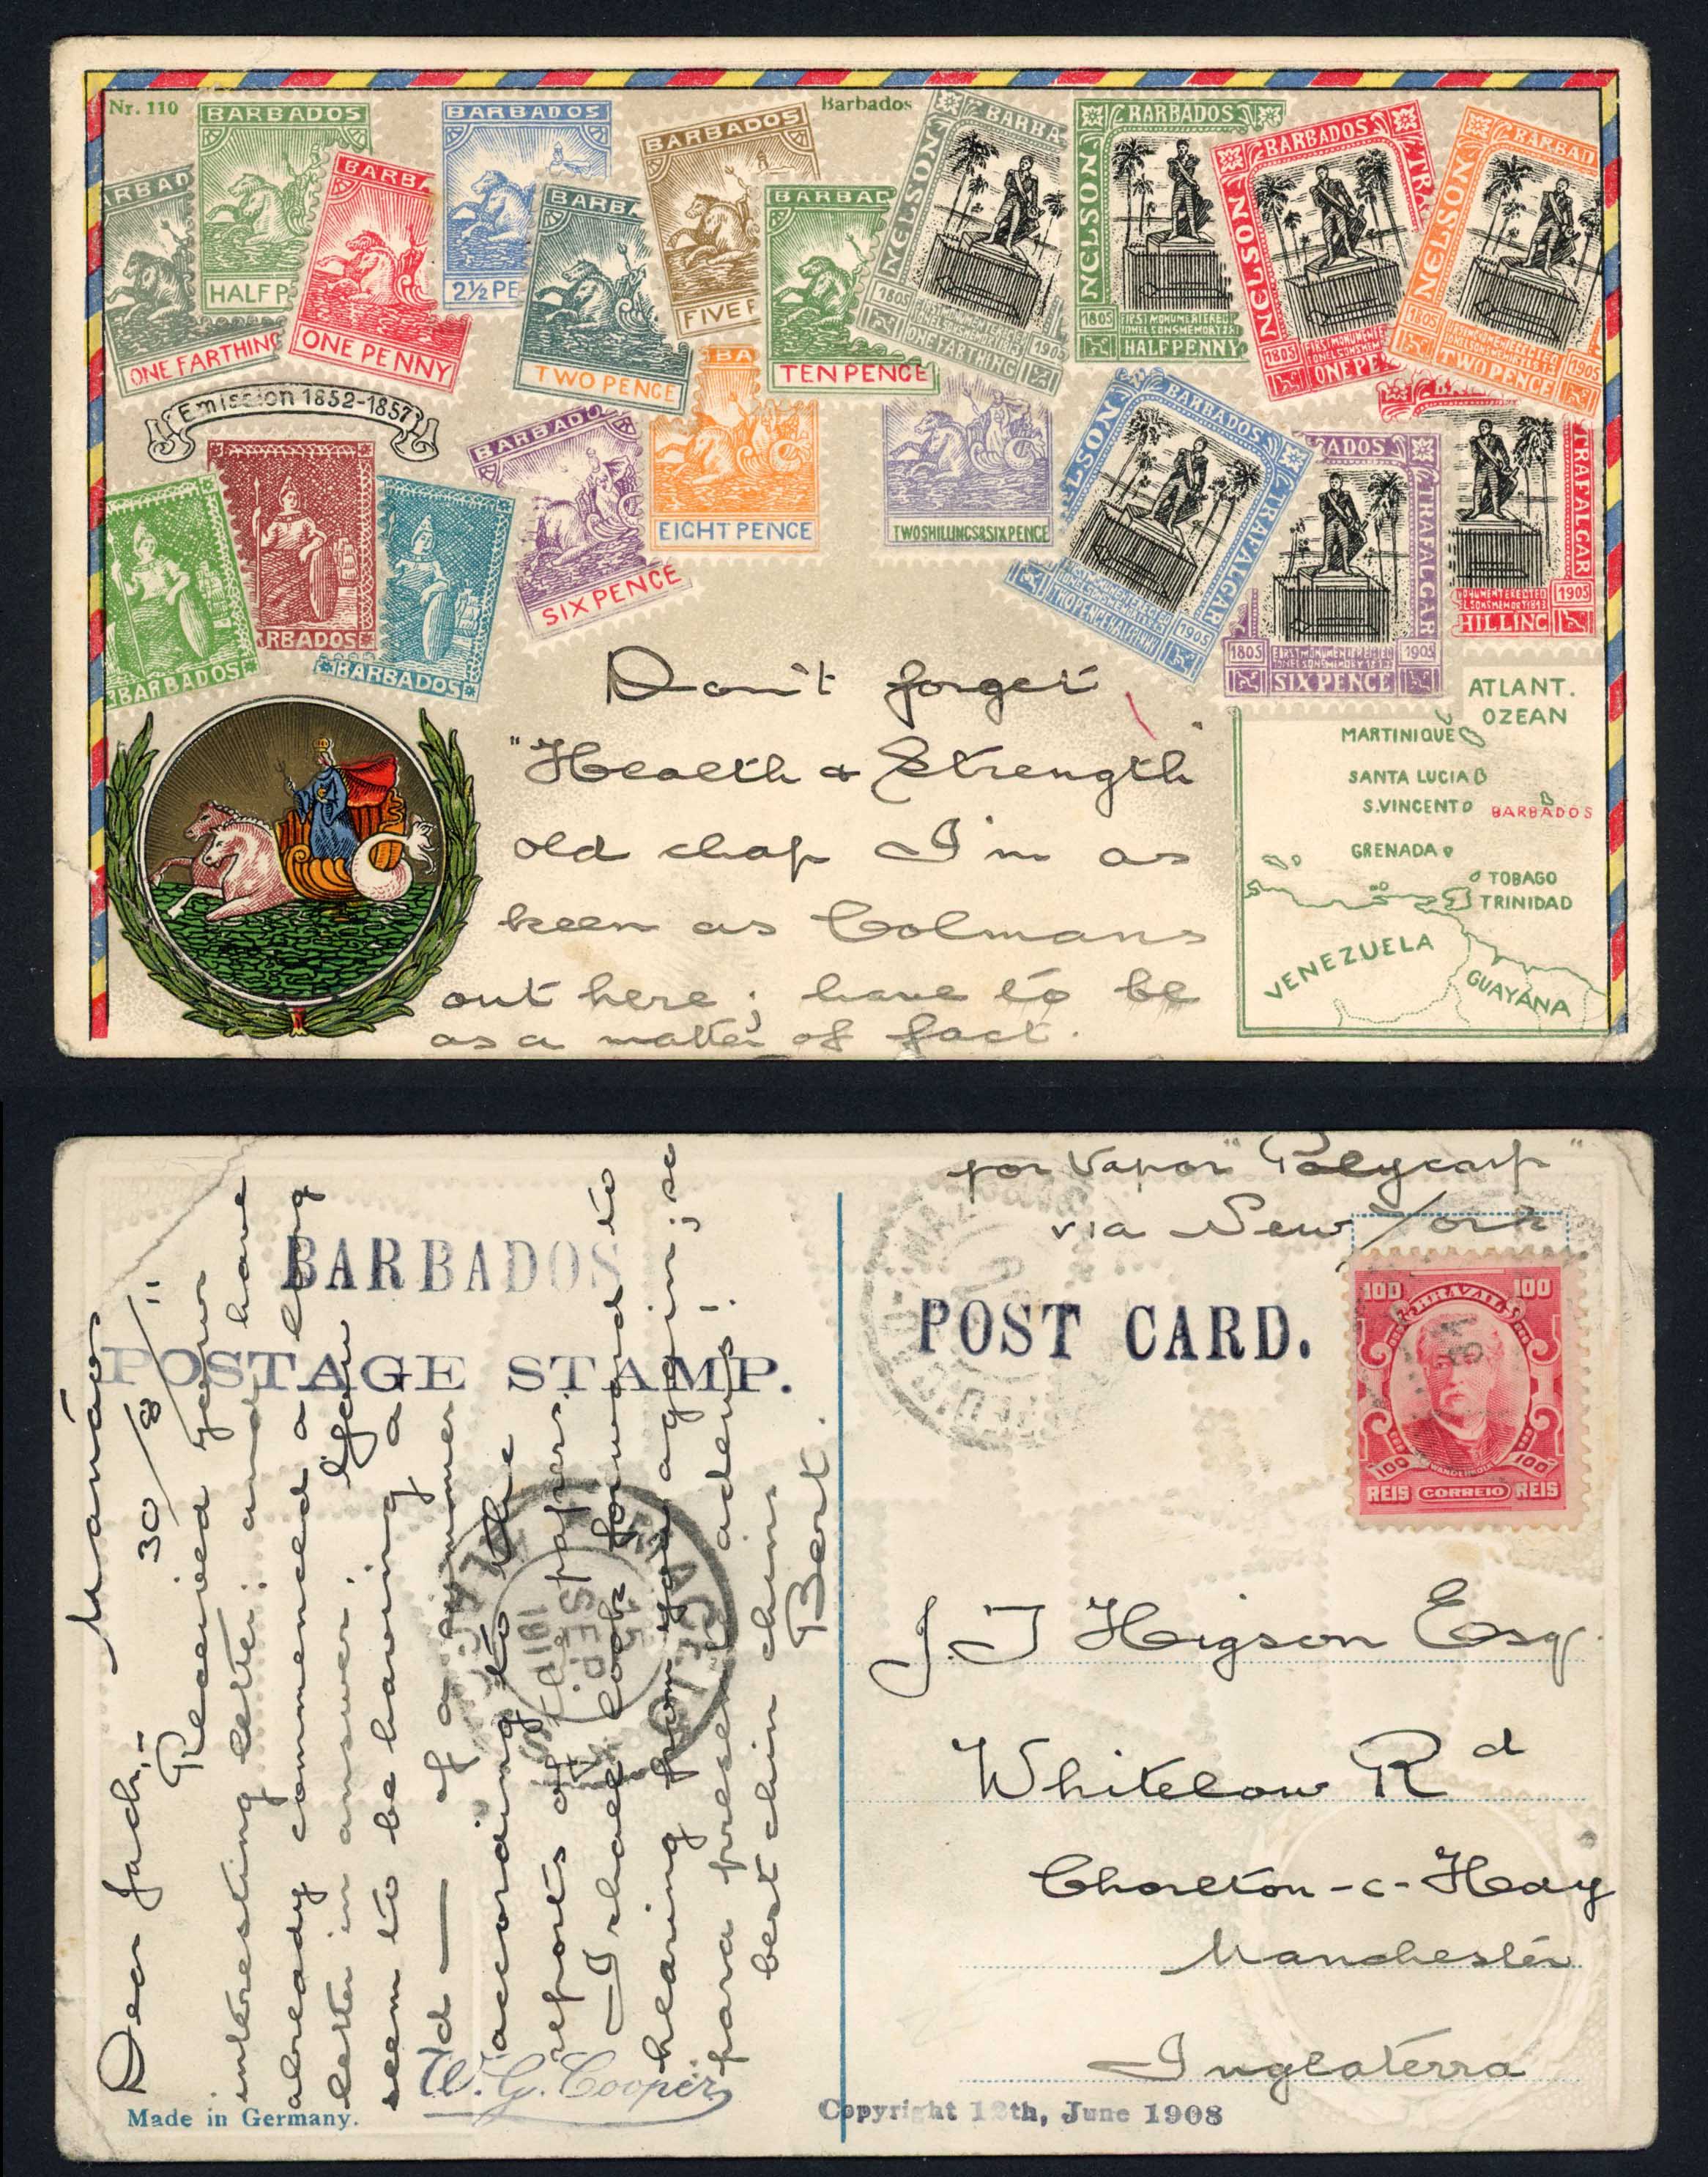 Nr. 110
Barbados
BARBADOS
HALF P
BARBADOS
2½ PE
BARBADOS
FIVE P
RBAD
ONE FARTHING
BARBA
ONE PENNY
BARBA
TWO PENCE
BARBAD
TEN PENCE
BARBA
NELSON
1805
ONE FARTHING
BARBADOS
NELSON
1805
HALF PENNY
BARBADOS
NELSON
TRA
1805
ONE PE
BARBAD
NELSON
1805
1905
TWO PENCE
Emission 1852-1857
BARBADOS
RBADOS
BARBADOS
BARBADO
SIX PENCE
BA
EIGHT PENCE
TWO SHILLINGS & SIX PENCE
BARBADOS
LSON
TRAFALGAR
1905
ADOS
TRAFALGAR
1805
1905
SIX PENCE
TRAFALGAR
1905
HILLING
Don't forget
"Health & Strength"
old chap I'm as
keen as Colmans
out here; have to be
as a matter of fact.
ATLANT.
OZEAN
MARTINIQUE
SANTA LUCIA
S. VINCENT
BARBADOS
GRENADA
TOBAGO
TRINIDAD
VENEZUELA
GUAYANA
por Vapor "Polycarp"
via New York
BARBADOS
POSTAGE STAMP.
POST CARD.
100 100
BRAZIL
100 100
REIS CORREIO REIS
Manáos
30/8/11
Dear Jack:-
Received your
interesting letter; and have
already commenced a long
letter in answer. You
seem to be having a
d— of a summer
according to the
reports of the papers.
I shall look forward to
hearing from you again; so
para present adeus!
best chin chins
Bert.
15
SEP.
W. G. Cooper
J. T Higson Esq.
Whitelow Rd
Chorlton-c-Hay
Manchester
Inglaterra
Made in Germany.
Copyright 12th, June 1908